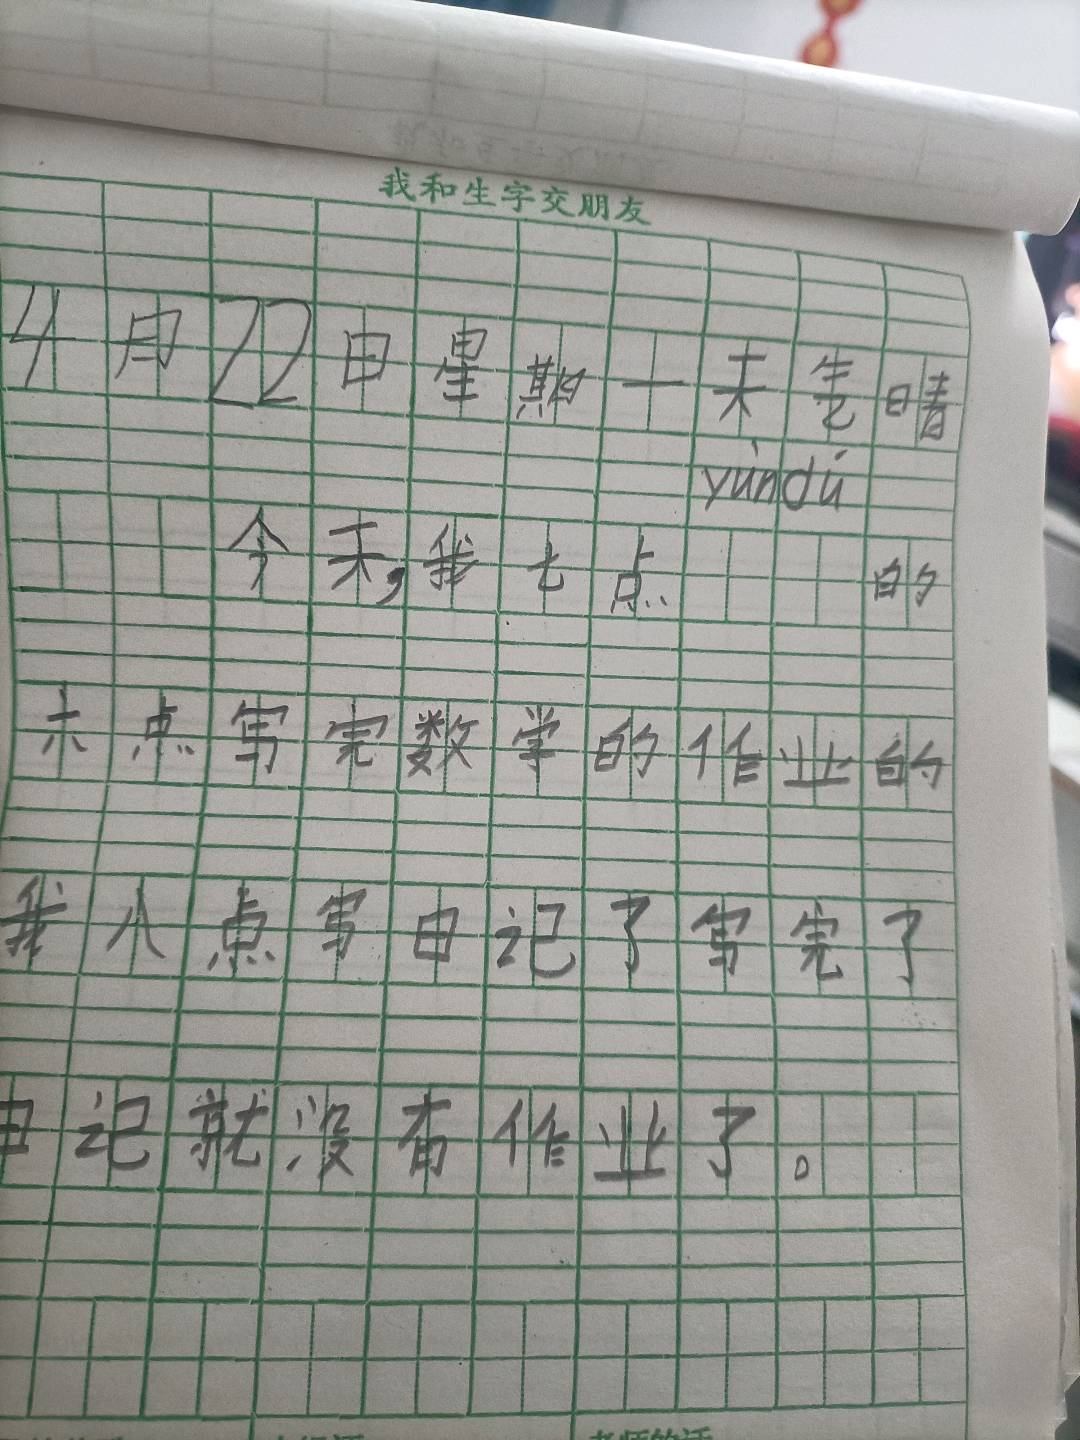 我和生字交朋友
4月22日星期一天气晴
yùndú
今天,我七点 的
六点写完数学的作业的
我八点写日记了写完了
日记就没有作业了。
老师的话